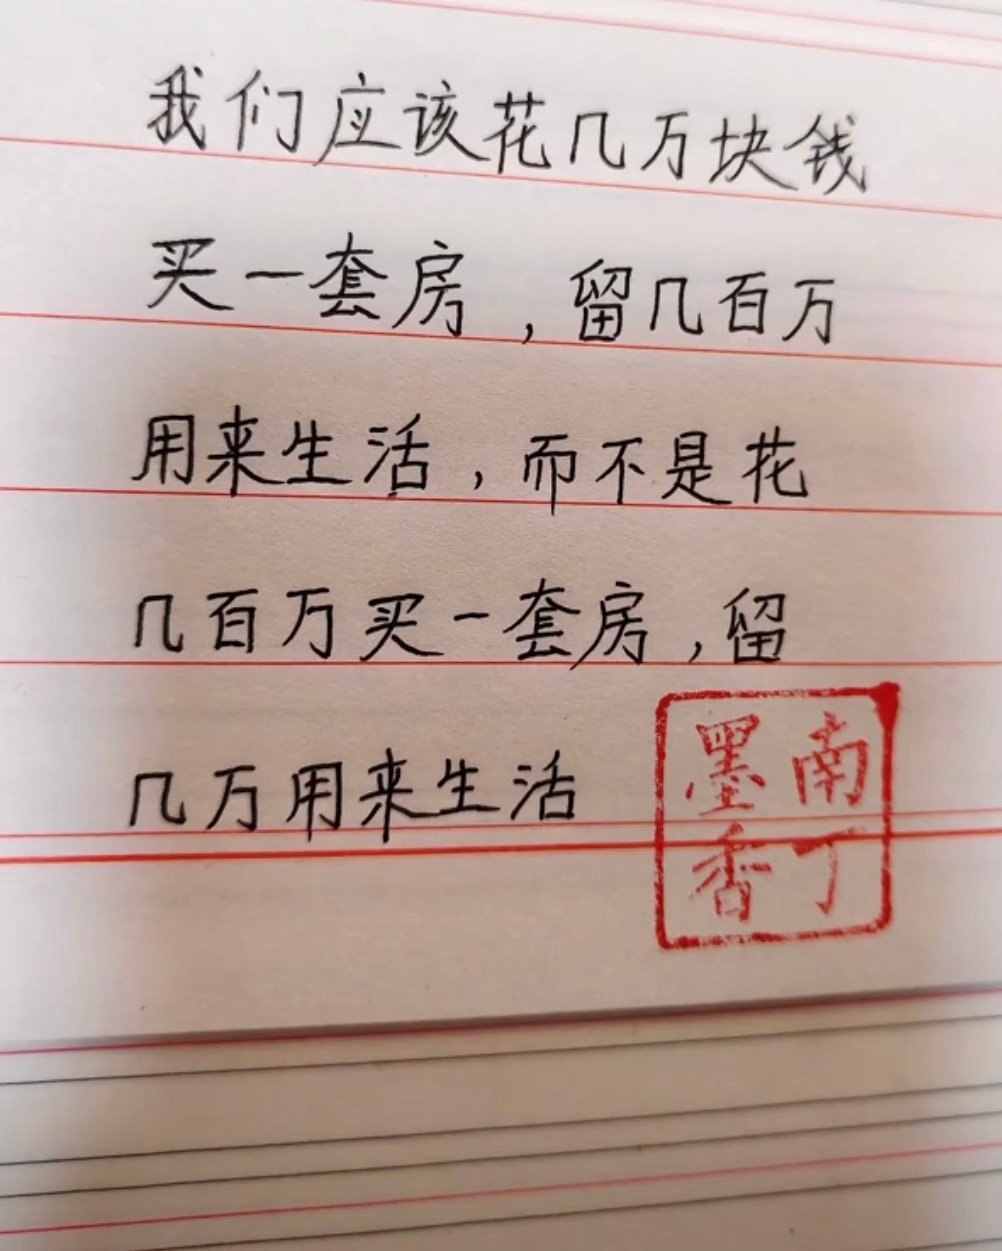 我们应该花几万块钱
买一套房，留几百万
用来生活，而不是花
几百万买一套房，留
几万用来生活
南丁
墨香